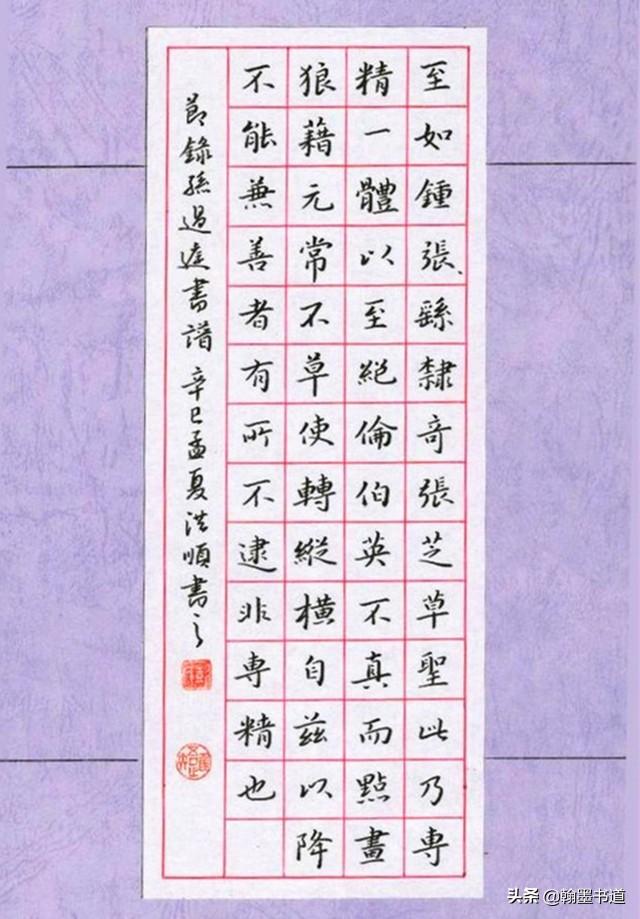 至如鍾張繇隸奇張芝草聖此乃專
精一體以至絕倫伯英不真而點畫
狼藉元常不草使轉縱橫自茲以降
不能兼善者有所不逮非專精也
節錄孫過庭書譜 辛巳孟夏洪順書之
头条 @翰墨书道